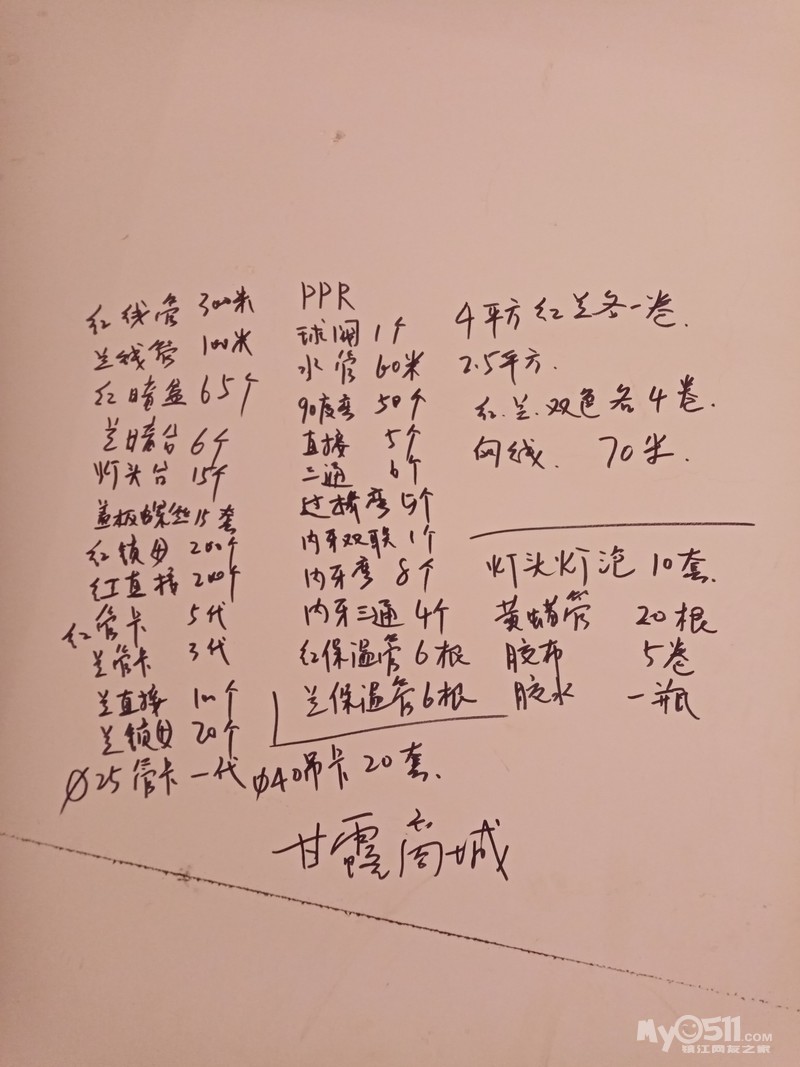 红线管 300米
兰线管 100米
红暗盒 65个
兰暗台 6个
灯头台 15个
盖板螺丝 15套
红锁母 200个
红直接 200个
红管卡 5代
兰管卡 3代
兰直接 10个
兰锁母 20个
Ø25管卡 一代
PPR
球阀 1个
水管 60米
90度弯 50个
直接 5个
三通 6个
过桥弯 5个
内牙双联 1个
内牙弯 8个
内牙三通 4个
红保温管 6根
兰保温管 6根
Ø40吊卡 20套.
4平方红兰各一卷.
2.5平方.
红.兰.双色各4卷.
网线. 70米.
灯头灯泡 10套.
黄蜡管 20根
胶布 5卷
胶水 一瓶
甘露商城
My0511.COM
镇江网友之家